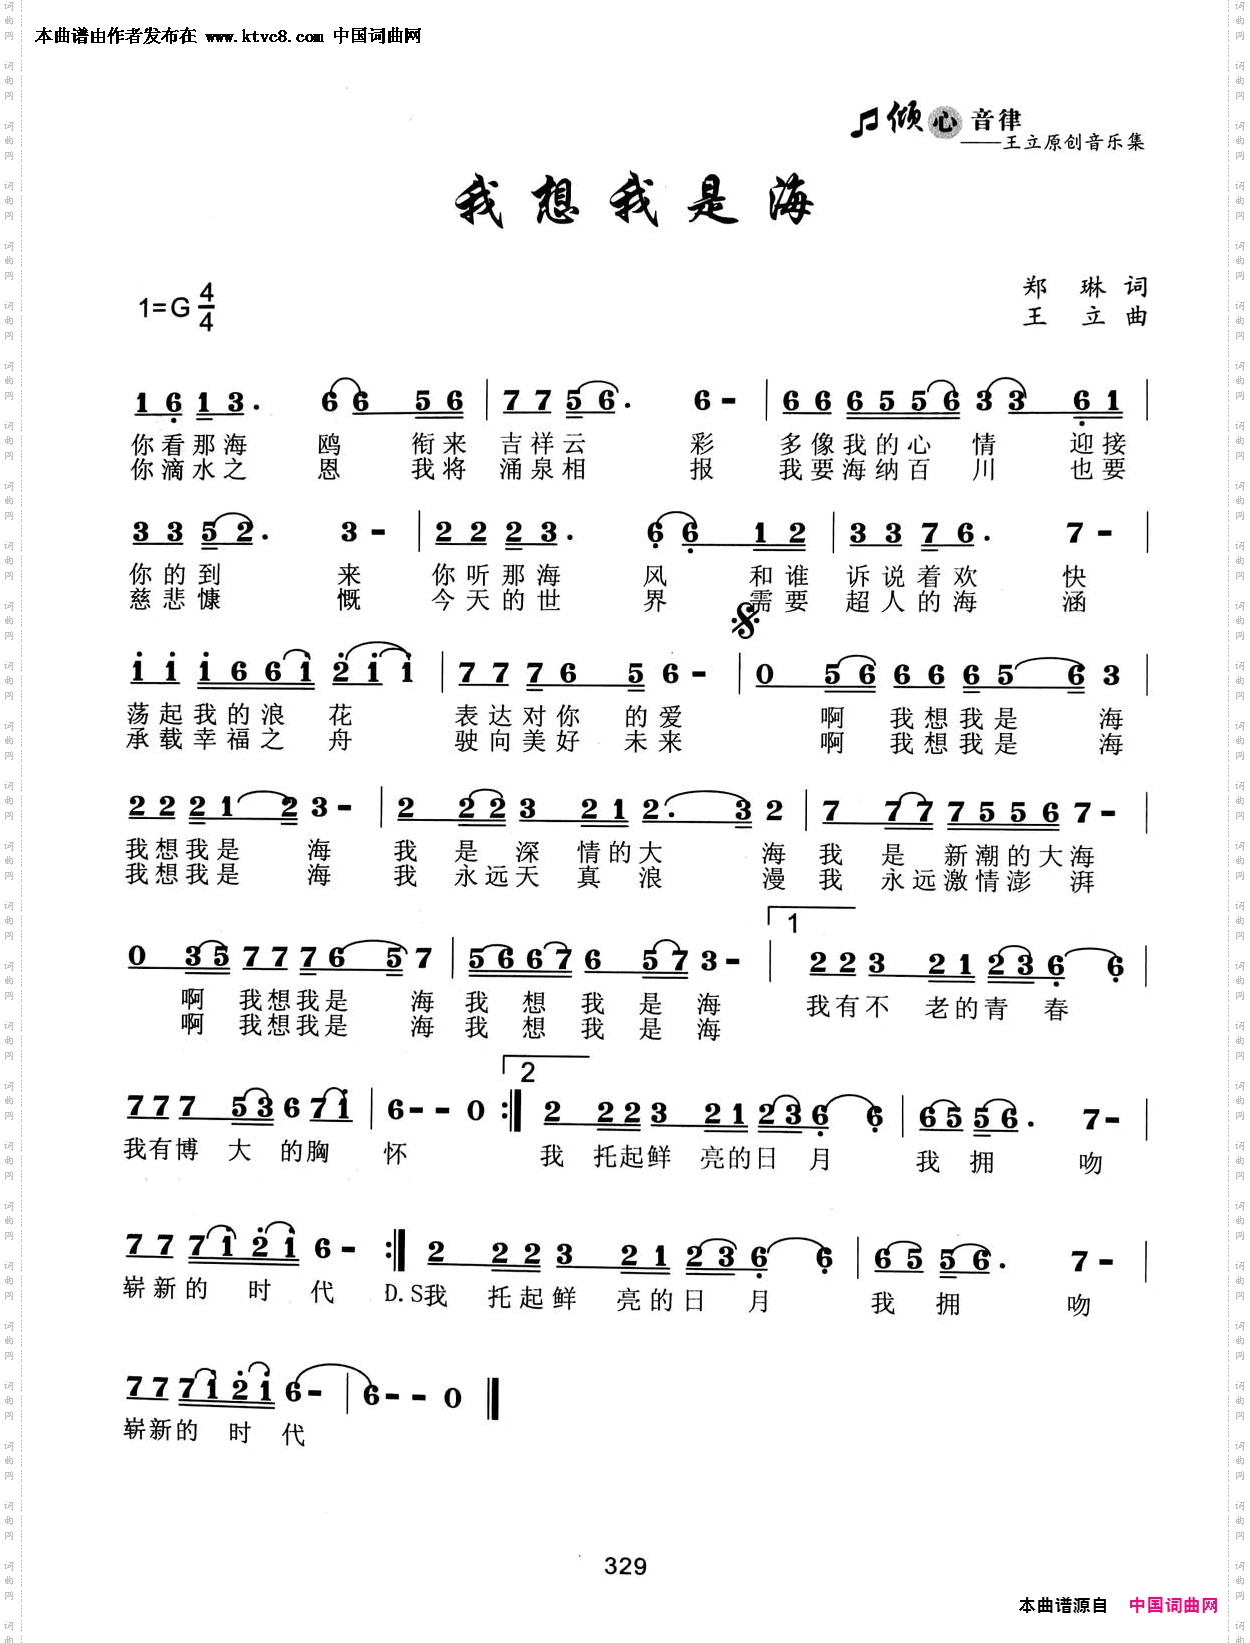 本曲谱由作者发布在 www.ktvc8.com 中国词曲网
倾心音律
——王立原创音乐集
我想我是海
郑 琳 词
1=G 4/4
王 立 曲
1 6 1 3. 6 6 5 6 | 7 7 5 6. 6 - | 6 6 6 5 5 6 3 3 6 1 |
你看那海 鸥 衔来 吉祥云 彩 多像我的心 情 迎接
你滴水之 恩 我将 涌泉相 报 我要海纳百 川 也要
3 3 5 2. 3 - | 2 2 2 3. 6 6 1 2 | 3 3 7 6. 7 - |
你的到 来 你听那海 风 和谁 诉说着欢 快
慈悲慷 慨 今天的世 界 需要 超人的海 涵
i i i 6 6 i 2 i i | 7 7 7 6 5 6 - | 0 5 6 6 6 6 5 6 3 |
荡起我的浪 花 表达对你 的爱 啊 我想我是 海
承载幸福之 舟 驶向美好 未来 啊 我想我是 海
2 2 2 1 2 3 - | 2 2 2 3 2 1 2. 3 2 | 7 7 7 7 5 5 6 7 - |
我想我是 海 我 是 深 情的大 海 我 是 新潮的大海
我想我是 海 我 永远天 真 浪 漫 我 永远激情澎 湃
1
0 3 5 7 7 7 6 5 7 | 5 6 6 7 6 5 7 3 - | 2 2 3 2 1 2 3 6 6 |
啊 我想我是 海 我 想 我 是 海 我有不 老的青 春
啊 我想我是 海 我 想 我 是 海
2
7 7 7 5 3 6 7 i | 6 - - 0 :| 2 2 2 3 2 1 2 3 6 6 | 6 5 5 6. 7 - |
我有博 大 的胸 怀 我 托起鲜 亮的日 月 我 拥 吻
7 7 7 i 2 i 6 - :| 2 2 2 3 2 1 2 3 6 6 | 6 5 5 6. 7 - |
崭新的 时 代 D.S我 托起鲜 亮的日 月 我 拥 吻
7 7 7 i 2 i 6 - | 6 - - 0 ‖
崭新的 时 代
329
本曲谱源自 中国词曲网